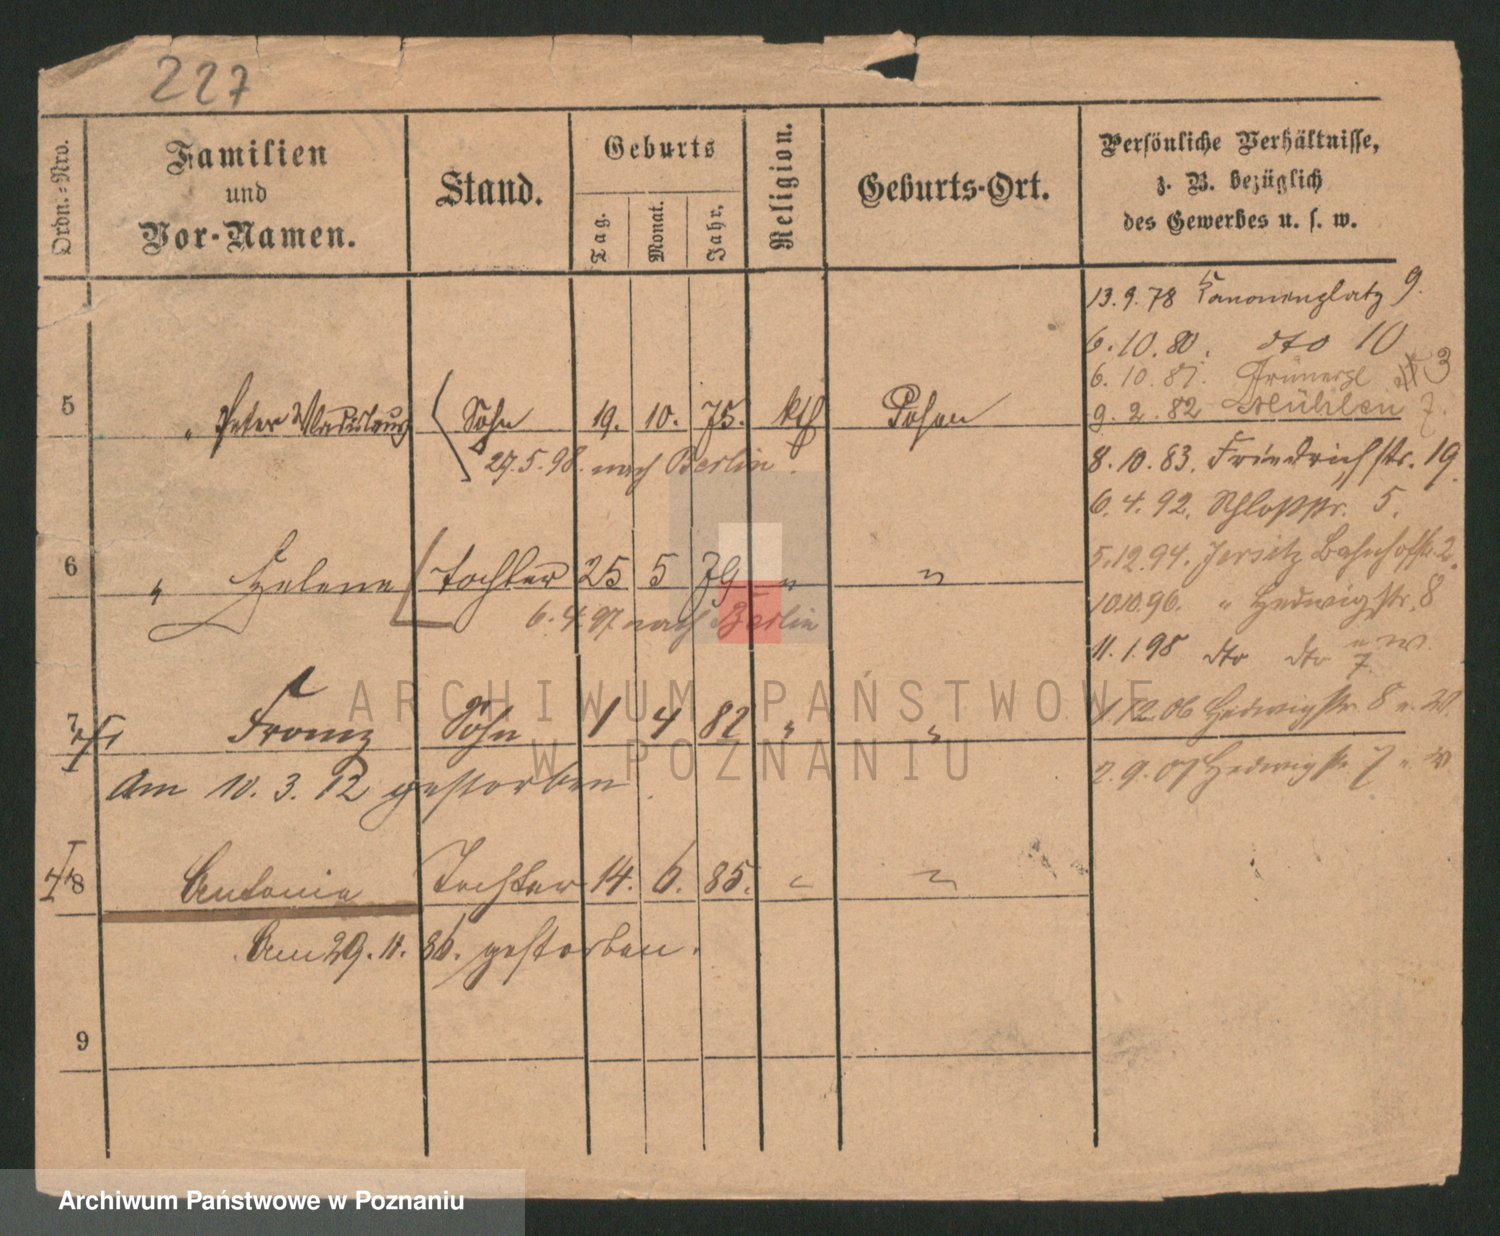 227
Ordn.-Nro.
Familien
und
Vor-Namen.
Stand.
Geburts
Tag.
Monat.
Jahr.
Religion.
Geburts-Ort.
Persönliche Verhältnisse,
z. B. bezüglich
des Gewerbes u. s. w.
13.9.78 Kanonenplatz 9.
6.10.80. dto 10
6. 10. 81. 3
9. 2. 82 Mühlen 7.
8.10.83. Friedrichstr. 19.
6.4.92. Schloßstr. 5.
5.12.94. Jersitz Bahnhofstr. 2.
10.10.96. " Hedwigstr. 8
11.1.98 dto dto 7.
1.12.06 Hedwigstr. 8 u. W.
2.9.07 Hedwigstr. 7 u. W
5 " Peter Wladislaus Sohn 19. 10. 75. kth Posen
27.5.98. nach Berlin.
6 " Helene Tochter 25 5 79 " "
6.4.97 nach Berlin
7 Franz Sohn 1 4 82 " "
Am 10. 3. 12 gestorben.
8 Antonie Tochter 14. 6. 85. " "
Am 29. 11. 86. gestorben.
9
ARCHIWUM PAŃSTWOWE
W POZNANIU
Archiwum Państwowe w Poznaniu